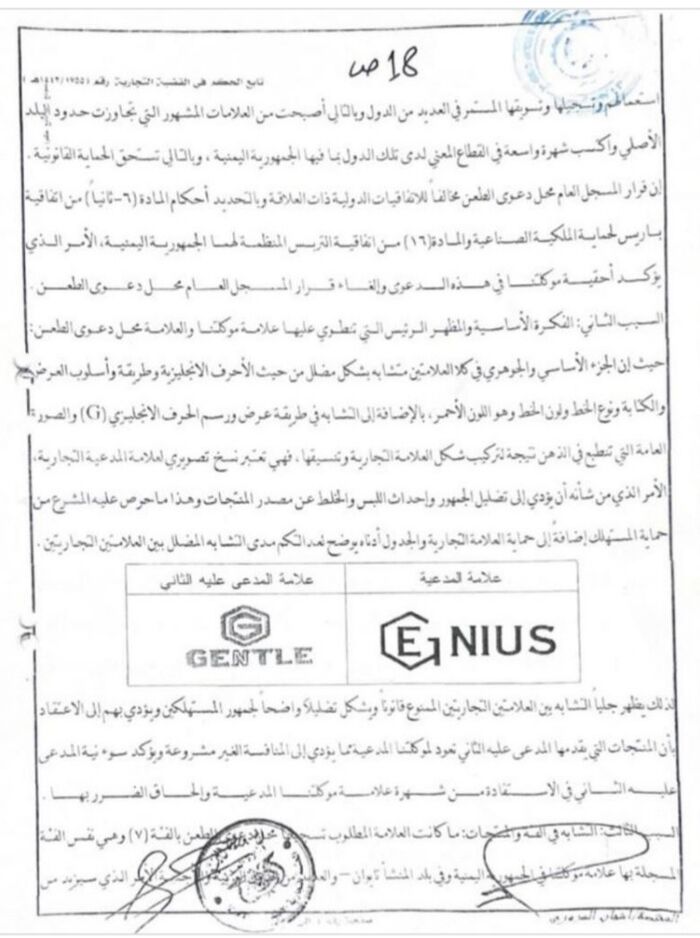 18 ص
تابع الحكم في القضية التجارية رقم
استعمالهم وتسجيلها وتسويقها المستمر في العديد من الدول وبالتالي أصبحت من العلامات المشهور التي تجاوزت حدود البلد
الأصلي واكسب شهرة واسعة في القطاع المعني لدى تلك الدول بما فيها الجمهورية اليمنية، وبالتالي تستحق الحماية القانونية.
إن قرار المسجل العام محل دعوى الطعن مخالفاً للاتفاقيات الدولية ذات العلاقة وبالتحديد أحكام المادة (٦-ثانياً) من اتفاقية
باريس لحماية الملكية الصناعية والمادة (١٦) من اتفاقية التربس المنظمة لهما الجمهورية اليمنية، الأمر الذي
يؤكد أحقية موكلتنا في هذه الدعوى وإلغاء قرار المسجل العام محل دعوى الطعن.
السبب الثاني: الفكرة الأساسية والمظهر الرئيس التي تنطوي عليها علامة موكلتنا والعلامة محل دعوى الطعن:
حيث إن الجزء الأساسي والجوهري في كلا العلامتين متشابه بشكل مضلل من حيث الأحرف الانجليزية وطريقة وأسلوب العرض
والكتابة ونوع الخط ولون الخط وهو اللون الأحمر، بالإضافة إلى التشابه في طريقة عرض ورسم الحرف الانجليزي (G) والصورة
العامة التي تنطبع في الذهن نتيجة لتركيب شكل العلامة التجارية وتنسيقها، فهي تعتبر نسخ تصويري لعلامة المدعية التجارية،
الأمر الذي من شأنه أن يؤدي إلى تضليل الجمهور وإحداث اللبس والخلط عن مصدر المنتجات وهذا ما حرص عليه المشرع من
حماية المستهلك إضافة إلى حماية العلامة التجارية والجدول أدناه يوضح لعدالتكم مدى التشابه المضلل بين العلامتين التجاريتين.
علامة المدعية
علامة المدعى عليه الثاني
GENIUS
G
GENTLE
لذلك يظهر جلياً التشابه بين العلامتين التجاريتين الممنوع قانوناً ويشكل تضليلاً واضحاً لجمهور المستهلكين ويؤدي بهم إلى الاعتقاد
بأن المنتجات التي يقدمها المدعى عليه الثاني تعود لموكلتنا المدعية مما يؤدي إلى المنافسة الغير مشروعة ويؤكد سوء نية المدعى
عليه الثاني في الاستفادة من شهرة علامة موكلتنا المدعية وإلحاق الضرر بها.
السبب الثالث: التشابه في الفئة والمنتجات: ما كانت العلامة المطلوب تسجيلها محل دعوى الطعن بالفئة (٧) وهي نفس الفئة
المسجلة بها علامة موكلتنا في الجمهورية اليمنية وفي بلد المنشأ تايوان - والعديد من الأمر الذي سيزيد من